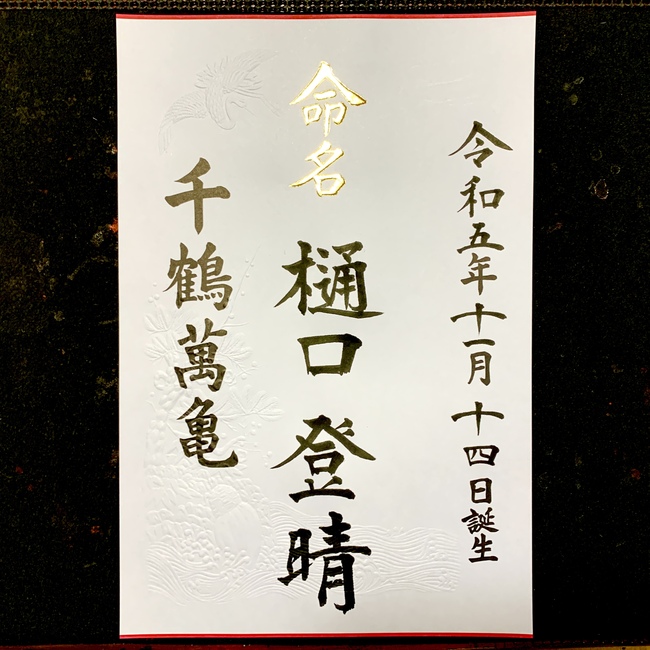 令和五年十一月十四日誕生
命名
樋口登晴
千鶴萬亀